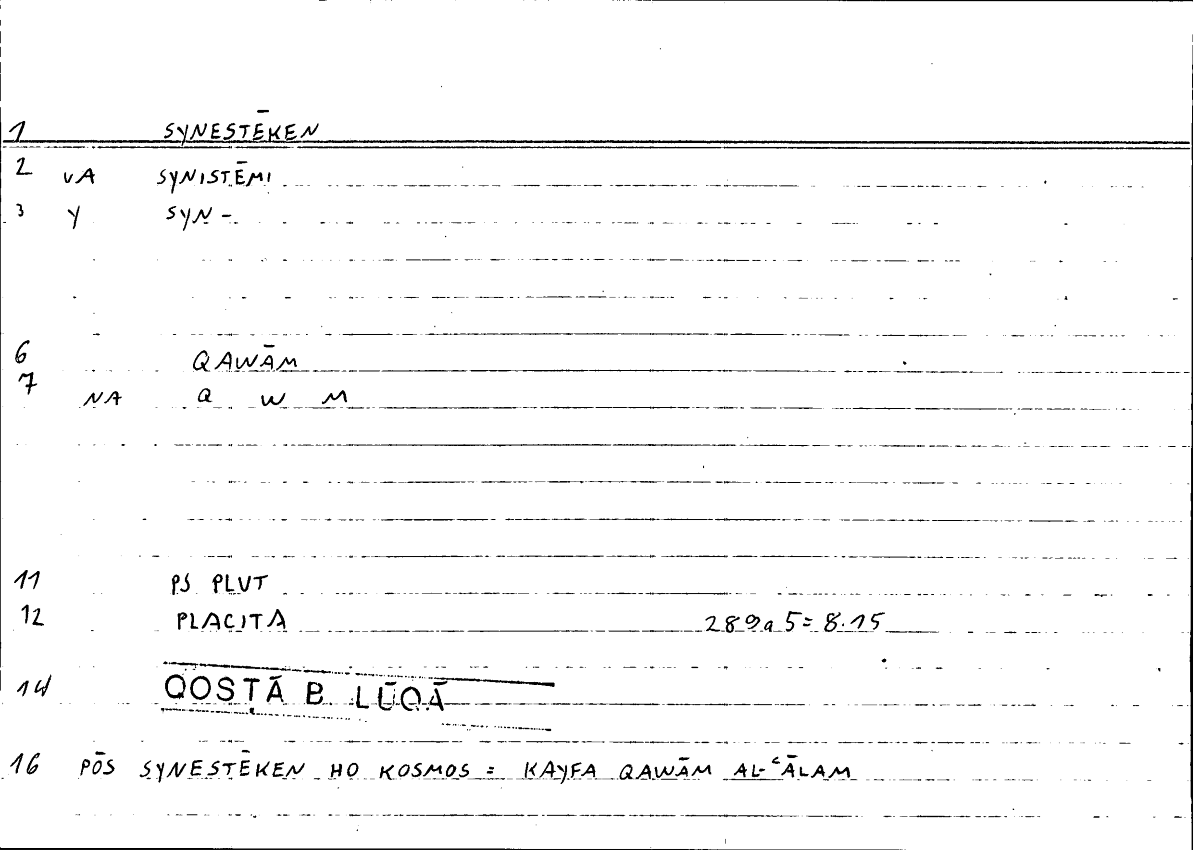 1 SYNESTĒKEN
2 VA SYNISTĒMI
3 Y SYN-
6 QAWĀM
7 NA Q W M
11 PS PLUT
12 PLACITA 289a5=8.15
14 QOSṬĀ B. LŪQĀ
16 PŌS SYNESTĒKEN HO KOSMOS = KAYFA QAWĀM AL-ʿĀLAM